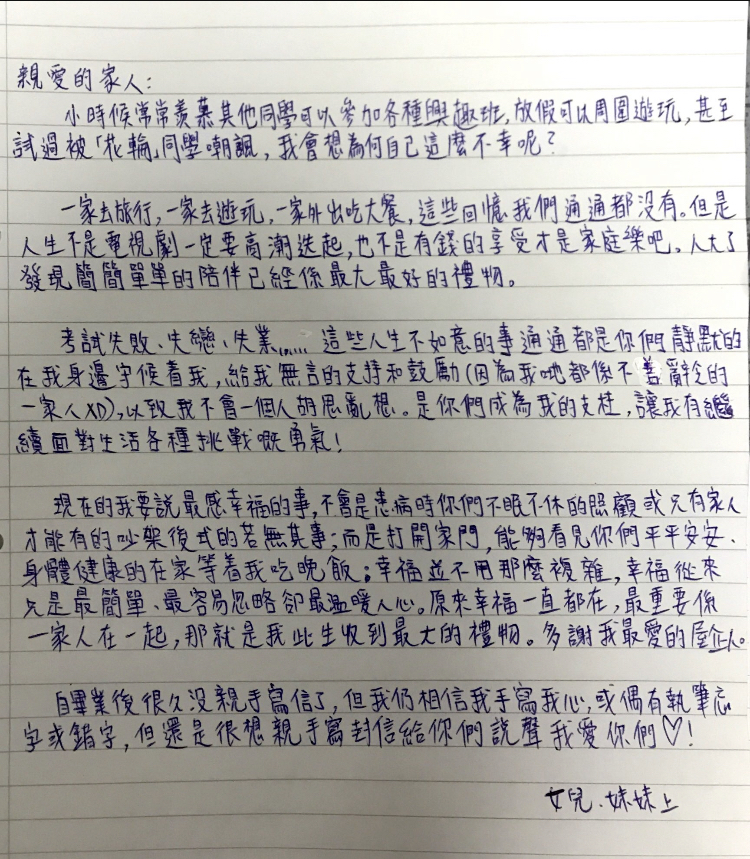 親愛的家人：
小時候常常羨慕其他同學可以參加各種興趣班，放假可以周圍遊玩，甚至
試過被「花輪」同學嘲諷，我會想為何自己這麼不幸呢？
一家去旅行，一家去遊玩，一家外出吃大餐，這些回憶我們通通都沒有。但是
人生不是電視劇一定要高潮迭起，也不是有錢的享受才是家庭樂吧。人大了
發現簡簡單單的陪伴已經係最大最好的禮物。
考試失敗、失戀、失業...... 這些人生不如意的事通通都是你們靜默的
在我身邊守候着我，給我無言的支持和鼓勵(因為我哋都係不善辭令的
一家人XD)，以致我不會一個人胡思亂想。是你們成為我的支柱，讓我有繼
續面對生活各種挑戰嘅勇氣！
現在的我要說最感幸福的事，不會是患病時你們不眠不休的照顧或只有家人
才能有的吵架後式的若無其事；而是打開家門，能夠看見你們平平安安、
身體健康的在家等着我吃晚飯；幸福並不用那麼複雜，幸福從來
只是最簡單、最容易忽略卻最溫暖人心。原來幸福一直都在，最重要係
一家人在一起，那就是我此生收到最大的禮物。多謝我最愛的屋企人。
自畢業後很久沒親手寫信了，但我仍相信我手寫我心，或偶有執筆忘
字或錯字，但還是很想親手寫封信給你們說聲我愛你們♡！
女兒、妹妹上